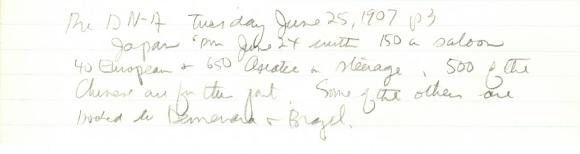 The D N-A Tuesday June 25, 1907 p3
Japan "Pm June 24 with 150 in saloon
40 European & 650 Asiatic in steerage. 500 of the
Chinese are for this port. Some of the others are
booked to Demerara & Brazil.